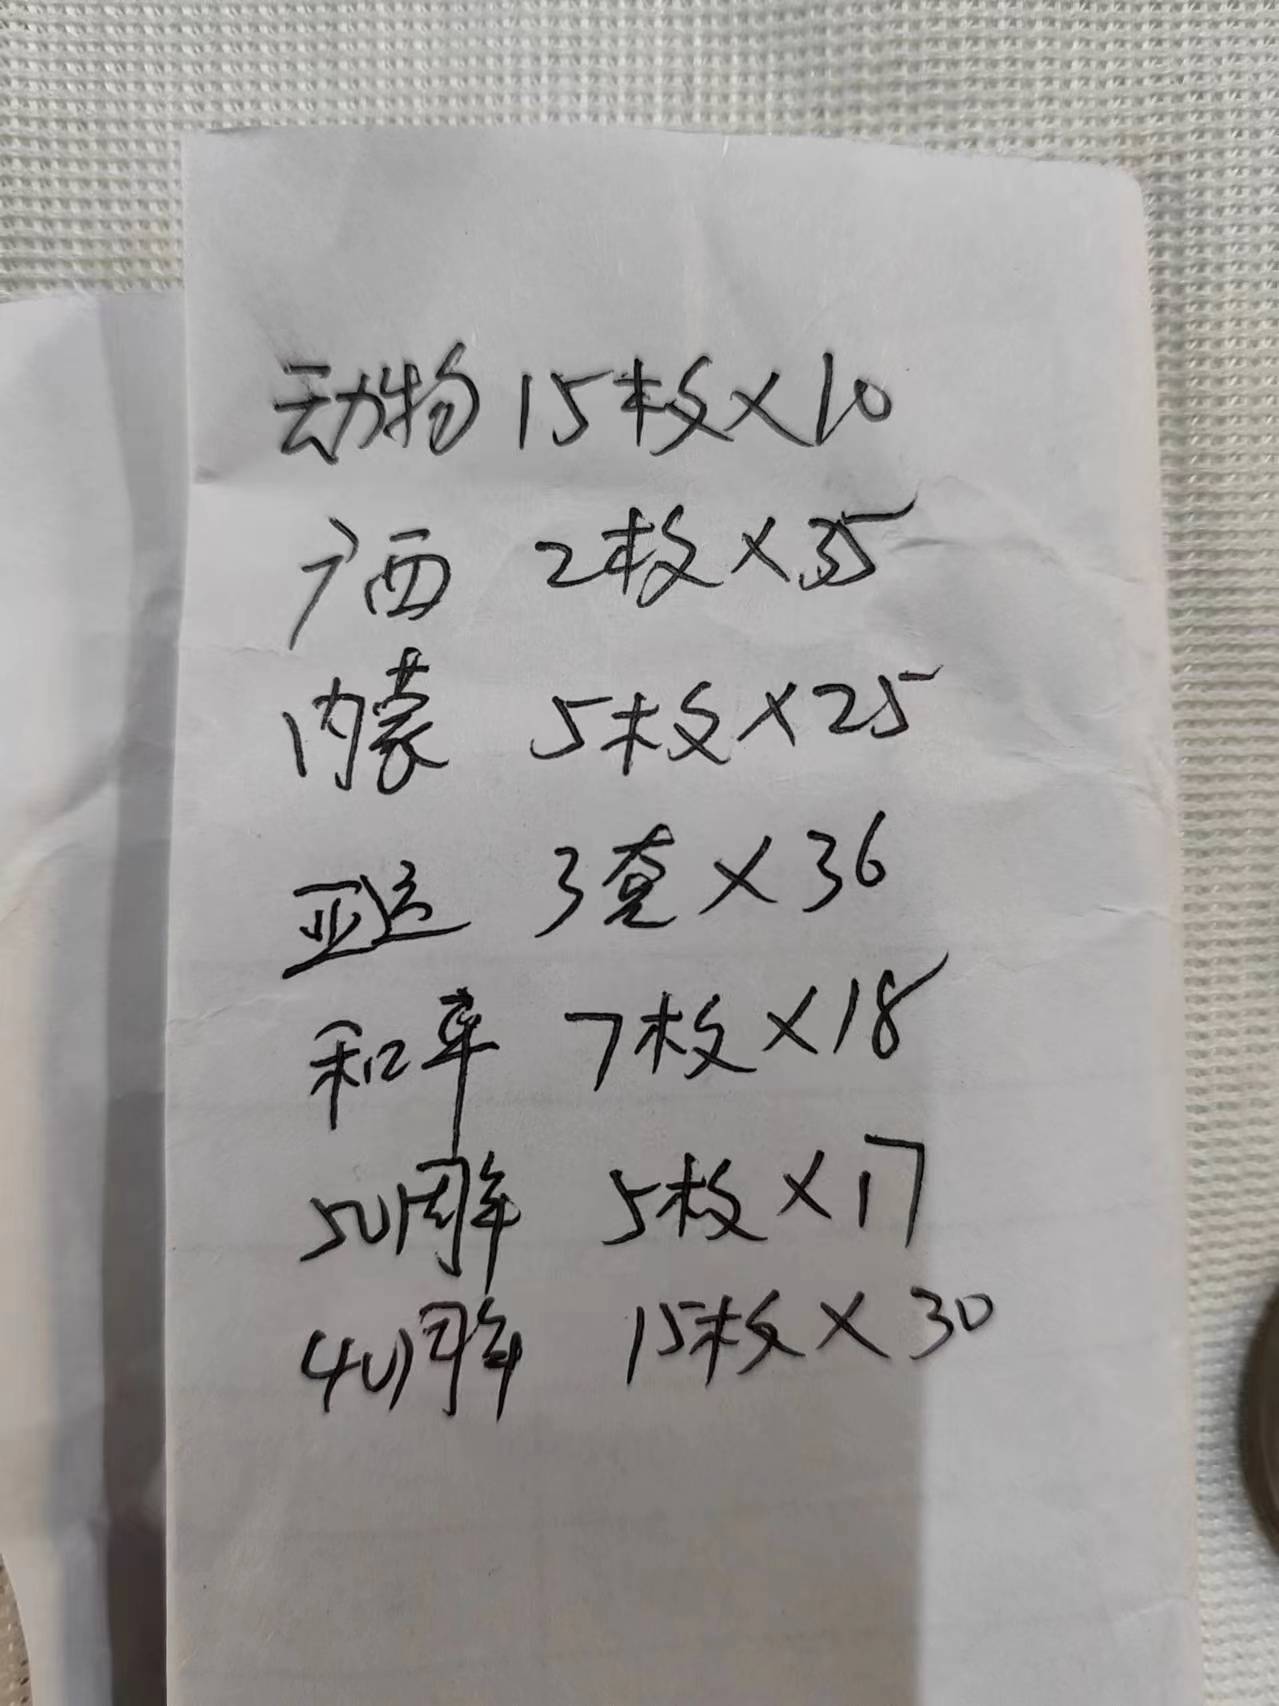 动物 15枚×10
广西 2枚×35
内蒙 5枚×25
亚运 3套×36
和平 7枚×18
50周年 5枚×17
40周年 15枚×30